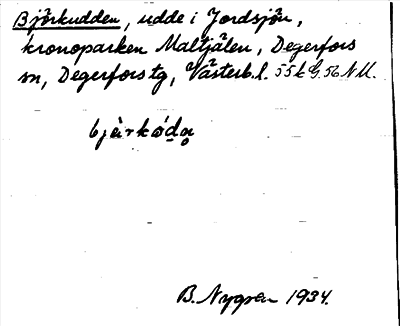 Björkudden, udde i Jordsjön,
kronoparken Maltjälen, Degerfors
sn, Degerfors tg, Västerb. l. 55k G. 56 NM.
bjärkɷ́dạ
B. Nygren 1934.